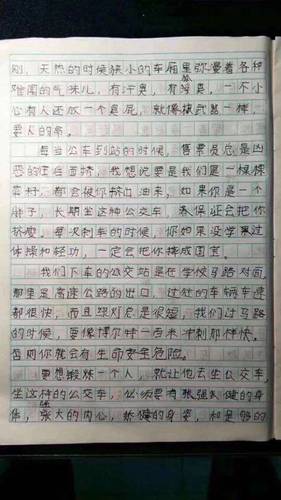 刚，天热的时候狭小的车厢里弥漫着各种
难闻的气味儿，有汗臭，有臭，一不小
心有人还放一个臭屁，就像核武器一样，
要人的命。
每当公车到站的时候，售票员总是凶
恶的往里面挤，我想说要是我们是一棵棵
菜籽，都会被你挤出油来，如果你是一个
胖子，长期坐这种公交车，我保证会把你
挤瘦。每次刹车的时候，你如果没学过
体操和轻功，一定会把你摔成国宝。
我们下车的公交站是在学校马路对面，
那里是高速公路的出口，过往的车辆车速
都很快，而且红灯总是很短，我们过马路
的时候，要像博尔特一百米冲刺那样快。
否则你就会有生命安全危险。
要想锻炼一个人，就让他去坐公交车，
坐这种的公交车，必须要有强大健的身
体，强大的内心，矫健的身姿，和足够的